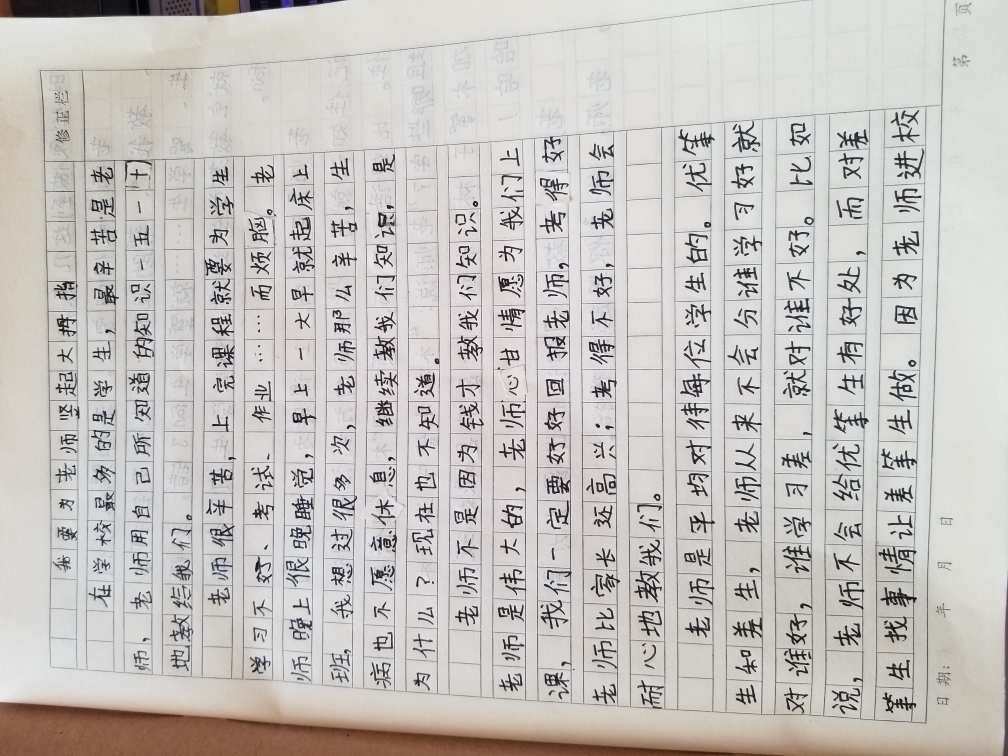 修正栏
我要为老师竖起大拇指
在学校最多的是学生，最辛苦是老
师，老师用自己所知道的知识一五一十
地教给我们。
老师很辛苦，上完课程就要为学生
学习不好、考试、作业……而烦脑。老
师晚上很晚睡觉，早上一大早就起床上
班，我想过很多次，老师那么辛苦，生
病也不愿意休息，继续教我们知识，是
为什么？现在也不知道。
老师不是因为钱才教我们知识。
老师是伟大的，老师心甘情愿为我们上
课，我们一定要好好回报老师，考得好
老师比家长还高兴；考得不好，老师会
耐心地教我们。
老师是平均对待每位学生的。优等
生和差生，老师从来不会分谁学习好就
对谁好，谁学习差，就对谁不好。比如
说，老师不会给优等生有好处，而对差
等生找事情让差等生做。因为老师进校
日期： 年 月 日
第 页